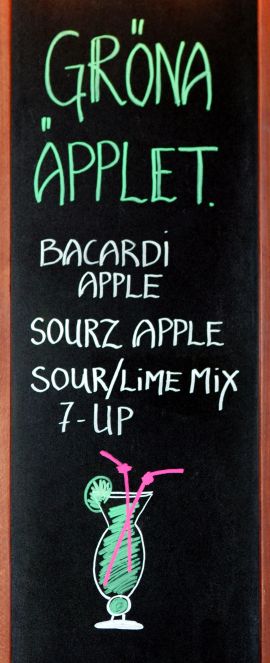 GRÖNA
ÄPPLET.
BACARDI
APPLE
SOURZ APPLE
SOUR/LIME MIX
7-UP